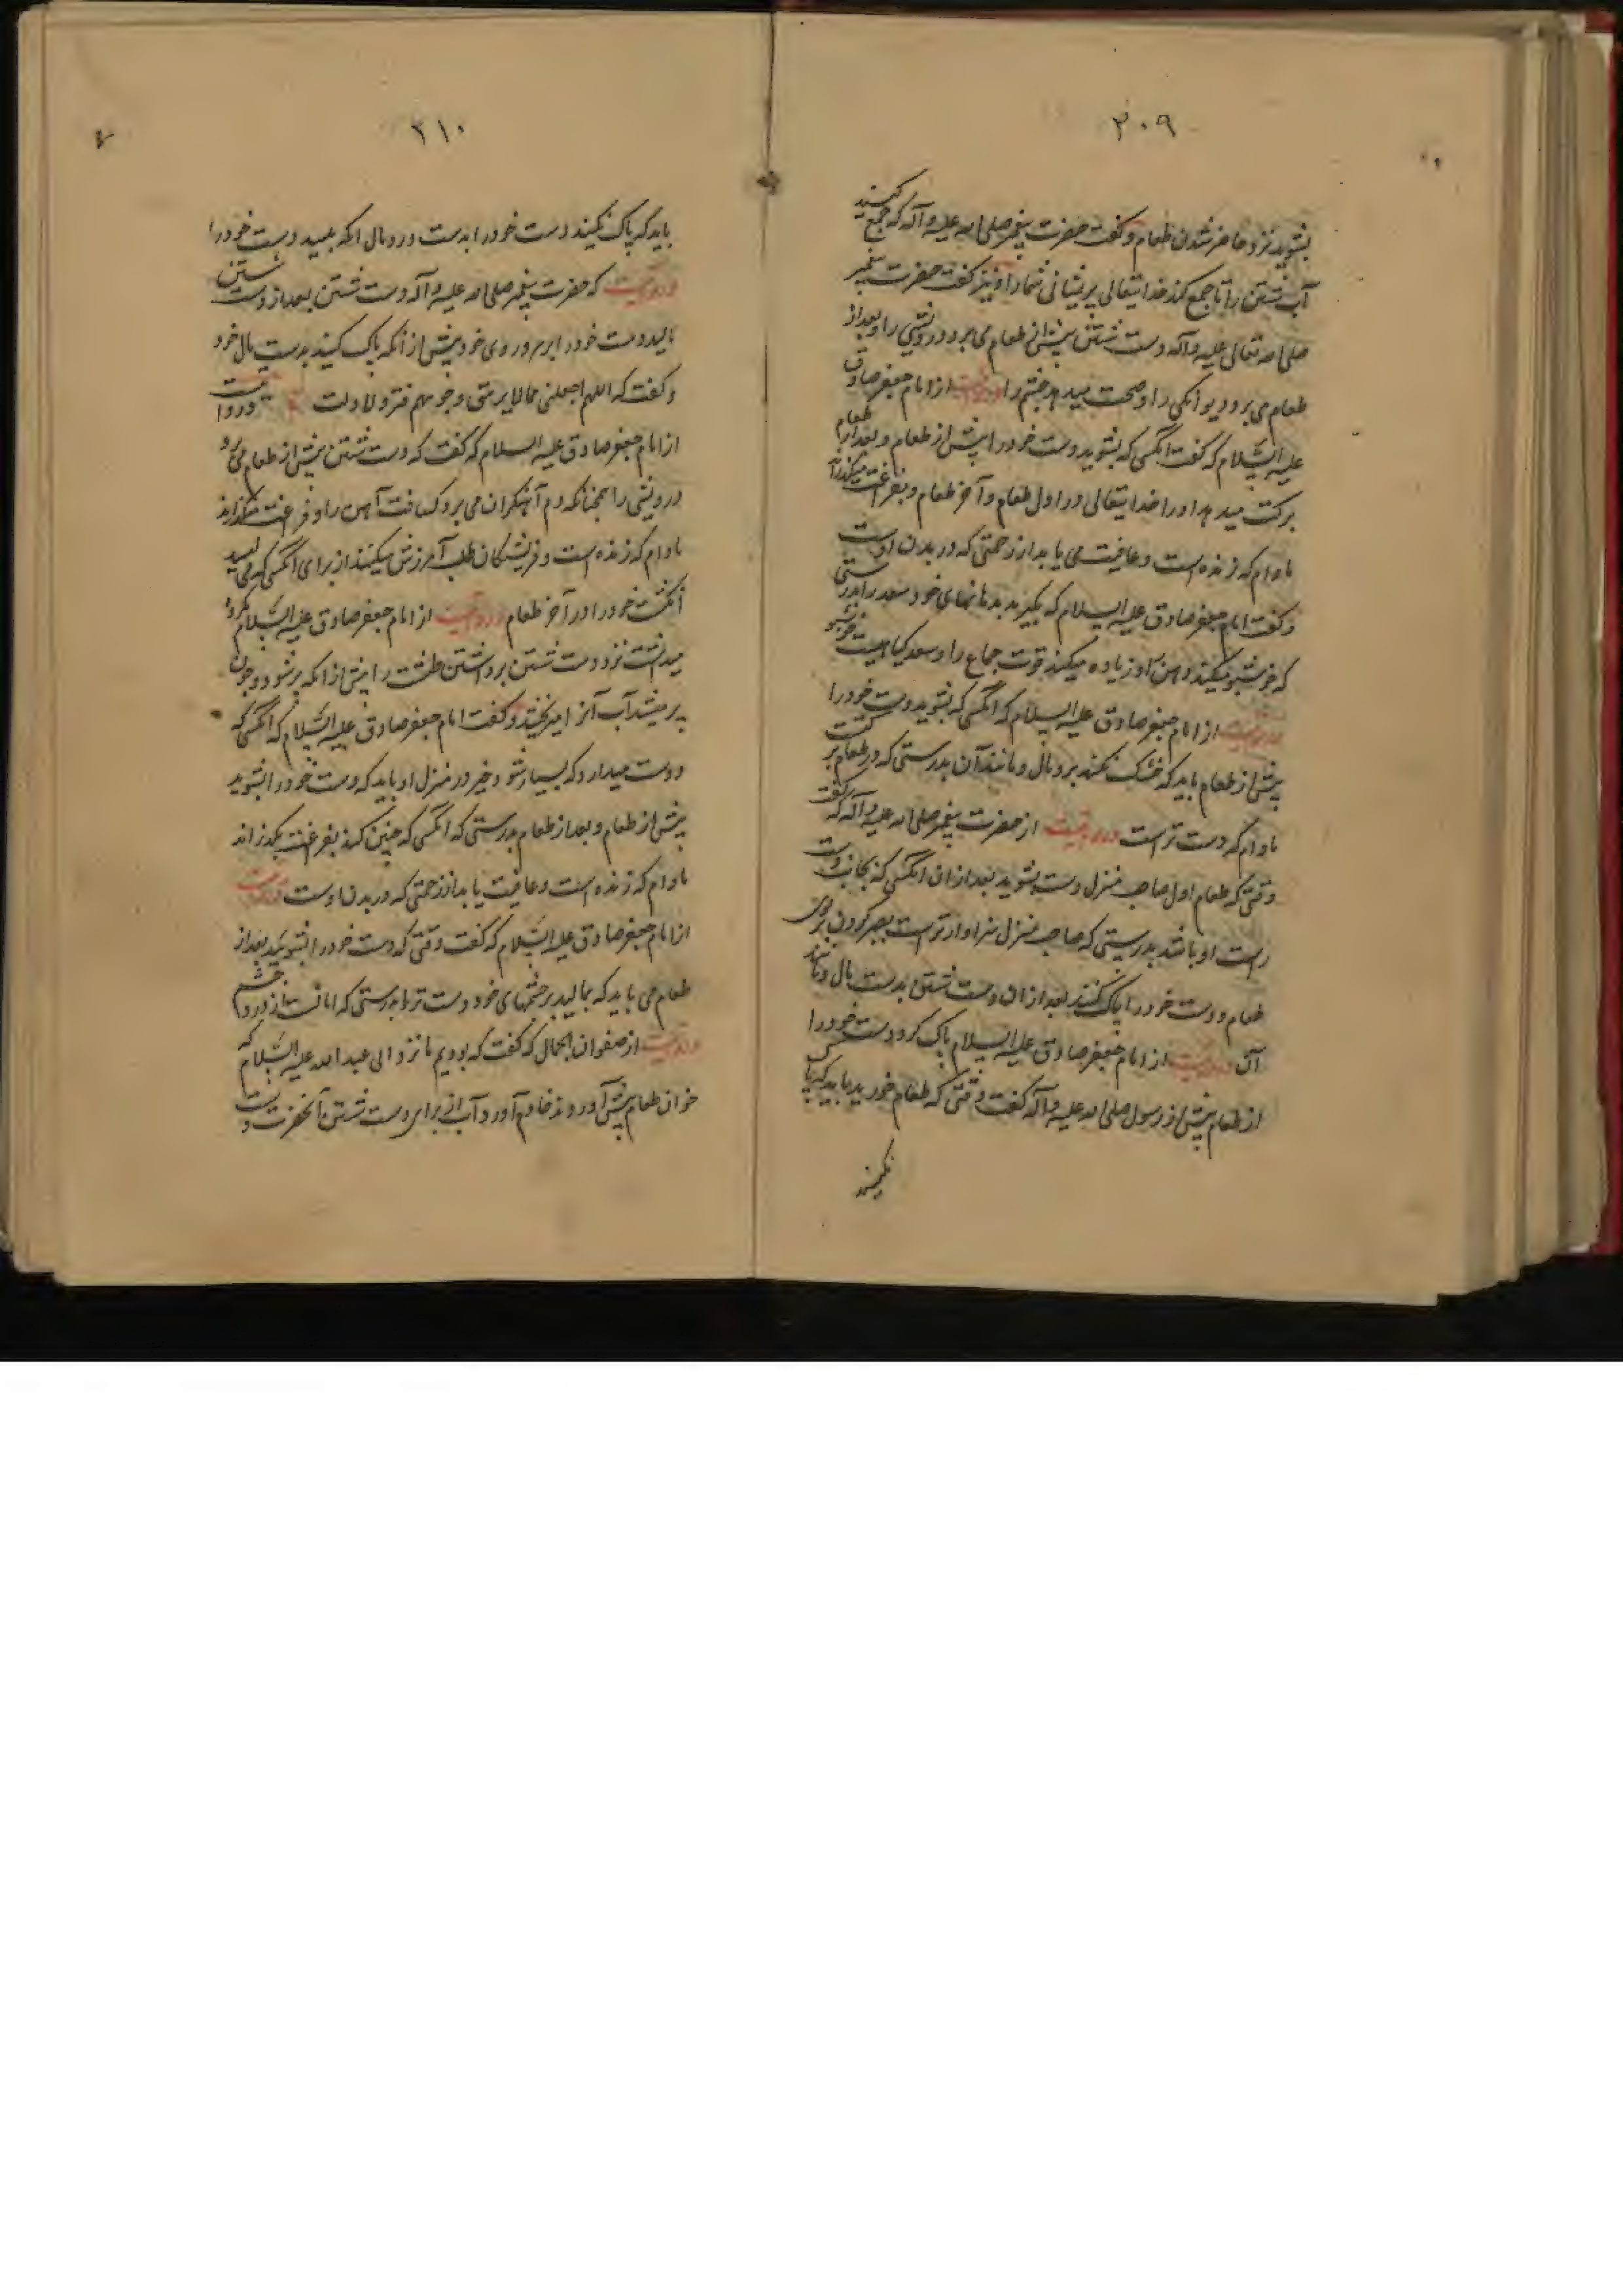 ۲۰۹
بشوید نزد حاضر شدن طعام و گفت حضرت پیغمبر صلی الله علیه و آله که جمع کنید
آب شستن را تا جمع کند خدایتعالی پریشانی شما را و نیز گفت حضرت پیغمبر
صلی الله تعالی علیه و آله دست شستن پیش از طعام می برد درویشی را و بعد از
طعام می برد دیوانگی را و صحت میدهد چشم را و روایت از امام جعفر صادق
علیه السّلام که گفت انکسی که بشوید دست خود را پیش از طعام و بعد از طعام
برکت میدهد او را خدایتعالی در اول طعام و آخر طعام و بفراغت میکذراند
مادام که زنده است و عافیت می یابد از زحمتی که در بدن اوست
و گفت امام جعفر صادق علیه السلام که بگیرید بدهانهای خود سعد را بدرستی
که خوشبو میکند دهن را و زیاده میکند قوت جماع را و سعد کیاهیست خوشبو
و روایت از امام جعفر صادق علیه السلام که انکسی که بشوید دست خود را
پیش از طعام باید که خشک نکند برومال و مانند آن بدرستی که در طعام برکتست
مادام که دست تر است و روایت از حضرت پیغمبر صلی الله علیه و آله که گفت
وقتی که طعام اول صاحب منزل دست بشوید بعد از ان انکسی که بجانب دست
راست او باشد بدرستی که صاحب منزل سزاوارتر است بصبر کردن بر بوی
طعام و دست خود را پاک کنند بعد از ان دست شستن بدست مال و مانند
آن و روایت از امام جعفر صادق علیه السلام پاک کرد دست خود را
از طعام پیش از رسول صلی الله علیه و آله گفت وقتی که طعام خورید باید که پاک
نکنید
۲۱۰
باید که پاک نکنید دست خود را بدست و رومال انکه بلیسد دست خود را
و روایت که حضرت پیغمبر صلی الله علیه و آله دست شستن بعد از دست شستن
مالید دست خود را بر سر و روی خود پیش از انکه پاک کنید بدست مال خود
و گفت که اللهم اجعلنی ممن لا یرهق وجوههم قتر و لا ذلت و روایت
از امام جعفر صادق علیه السلام که گفت که دست شستن پیش از طعام می برد
درویشی را همچنانکه دم آهنکران می برد کثافت آهن را و فراغت میکذراند
مادام که زنده است و فریشتکان طلب آمرزش میکنند از برای انکسی که می لیسد
انگشت خود را در آخر طعام و روایت از امام جعفر صادق علیه السّلام مکروه
میدانست نزد دست شستن برداشتن طشت را پیش از انکه پر شود و چون
پر میشد آب آنرا میریختند و گفت امام جعفر صادق علیه السّلام که انکسی که
دوست میدارد که بسیار شود خیر در منزل او باید که دست خود را بشوید
پیش از طعام و بعد از طعام بدرستی که انکسی که چنین کند بفراغت بکذراند
مادام که زنده است و عافیت یابد از زحمتی که در بدن اوست و روایت
از امام جعفر صادق علیه السّلام که گفت وقتی که دست خود را بشویید بعد از
طعام می باید که بمالید بر چشمهای خود دست تر را بدرستی که امانست از درد چشم
و روایت از صفوان الجمال که گفت که بودیم ما نزد ابی عبد الله علیه السّلام که
خوان طعام پیش آوردند خادم آورد آب از برای دست شستن آنحضرت